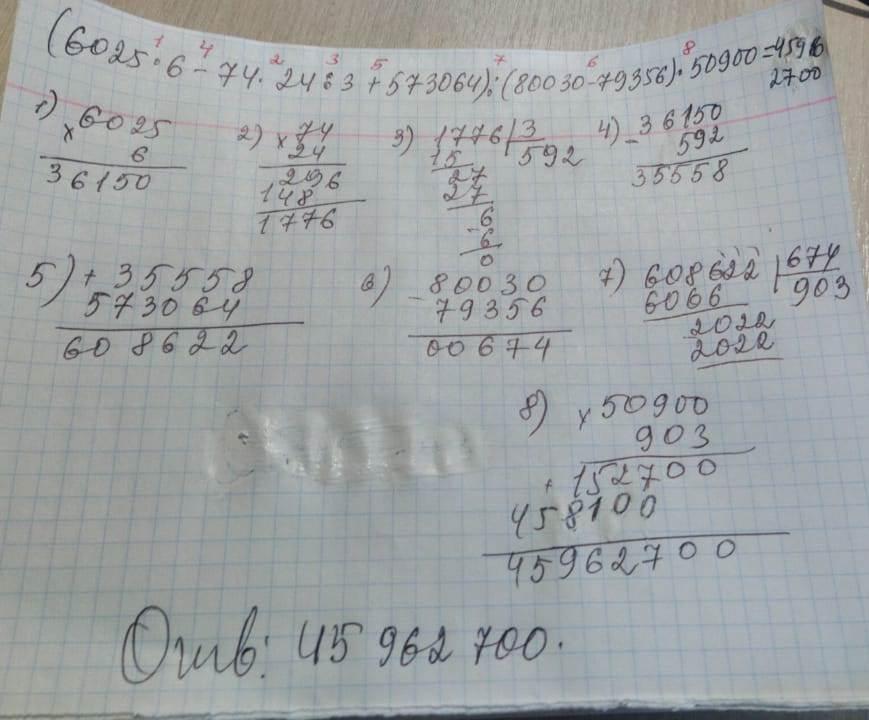 (6025·6-74·24:3+573064):(80030-79356)·50900=45962700
1 4 2 3 5 7 6 8
1) ×6025
6
36150
2) ×74
24
296
148
1776
3) 1776|3
15 592
27
27
-6
6
0
4) -36150
592
35558
5) +35558
573064
608622
6) -80030
79356
00674
7) 608622|674
6066 903
2022
2022
8) ×50900
903
+152700
458100
45962700
Отв: 45 962 700.